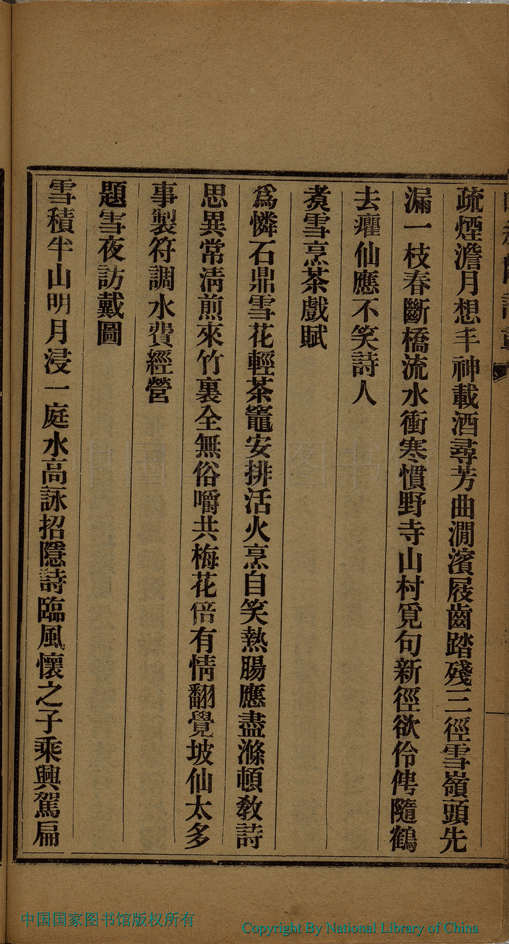 疏煙澹月想丰神載酒尋芳曲澗濱屐齒踏殘三徑雪嶺頭先
漏一枝春斷橋流水衝寒慣野寺山村覓句新徑欲伶俜隨鶴
去癯仙應不笑詩人
煑雪烹茶戲賦
爲憐石鼎雪花輕茶竈安排活火烹自笑熱腸應盡滌頓敎詩
思異常淸煎來竹裏全無俗嚼共梅花倍有情翻覺坡仙太多
事製符調水費經營
題雪夜訪戴圖
雪積半山明月浸一庭水高詠招隱詩臨風懷之子乘興駕扁
中国国家图书馆版权所有
Copyright By National Library of China